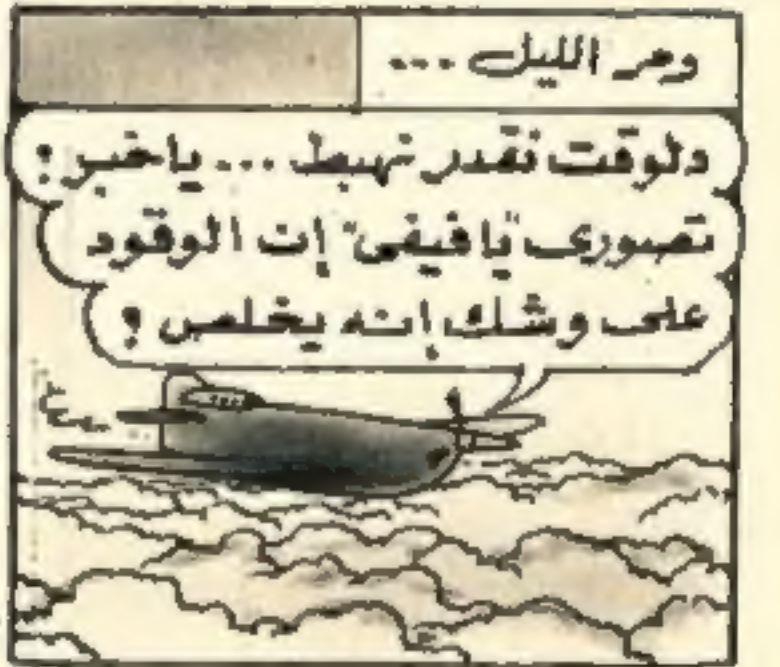 ومر الليل ...
دلوقت نقدر نهبط ... ياخبر !
تصورى "يا فيفى" إن الوقود
على وشك إنه يخلص !